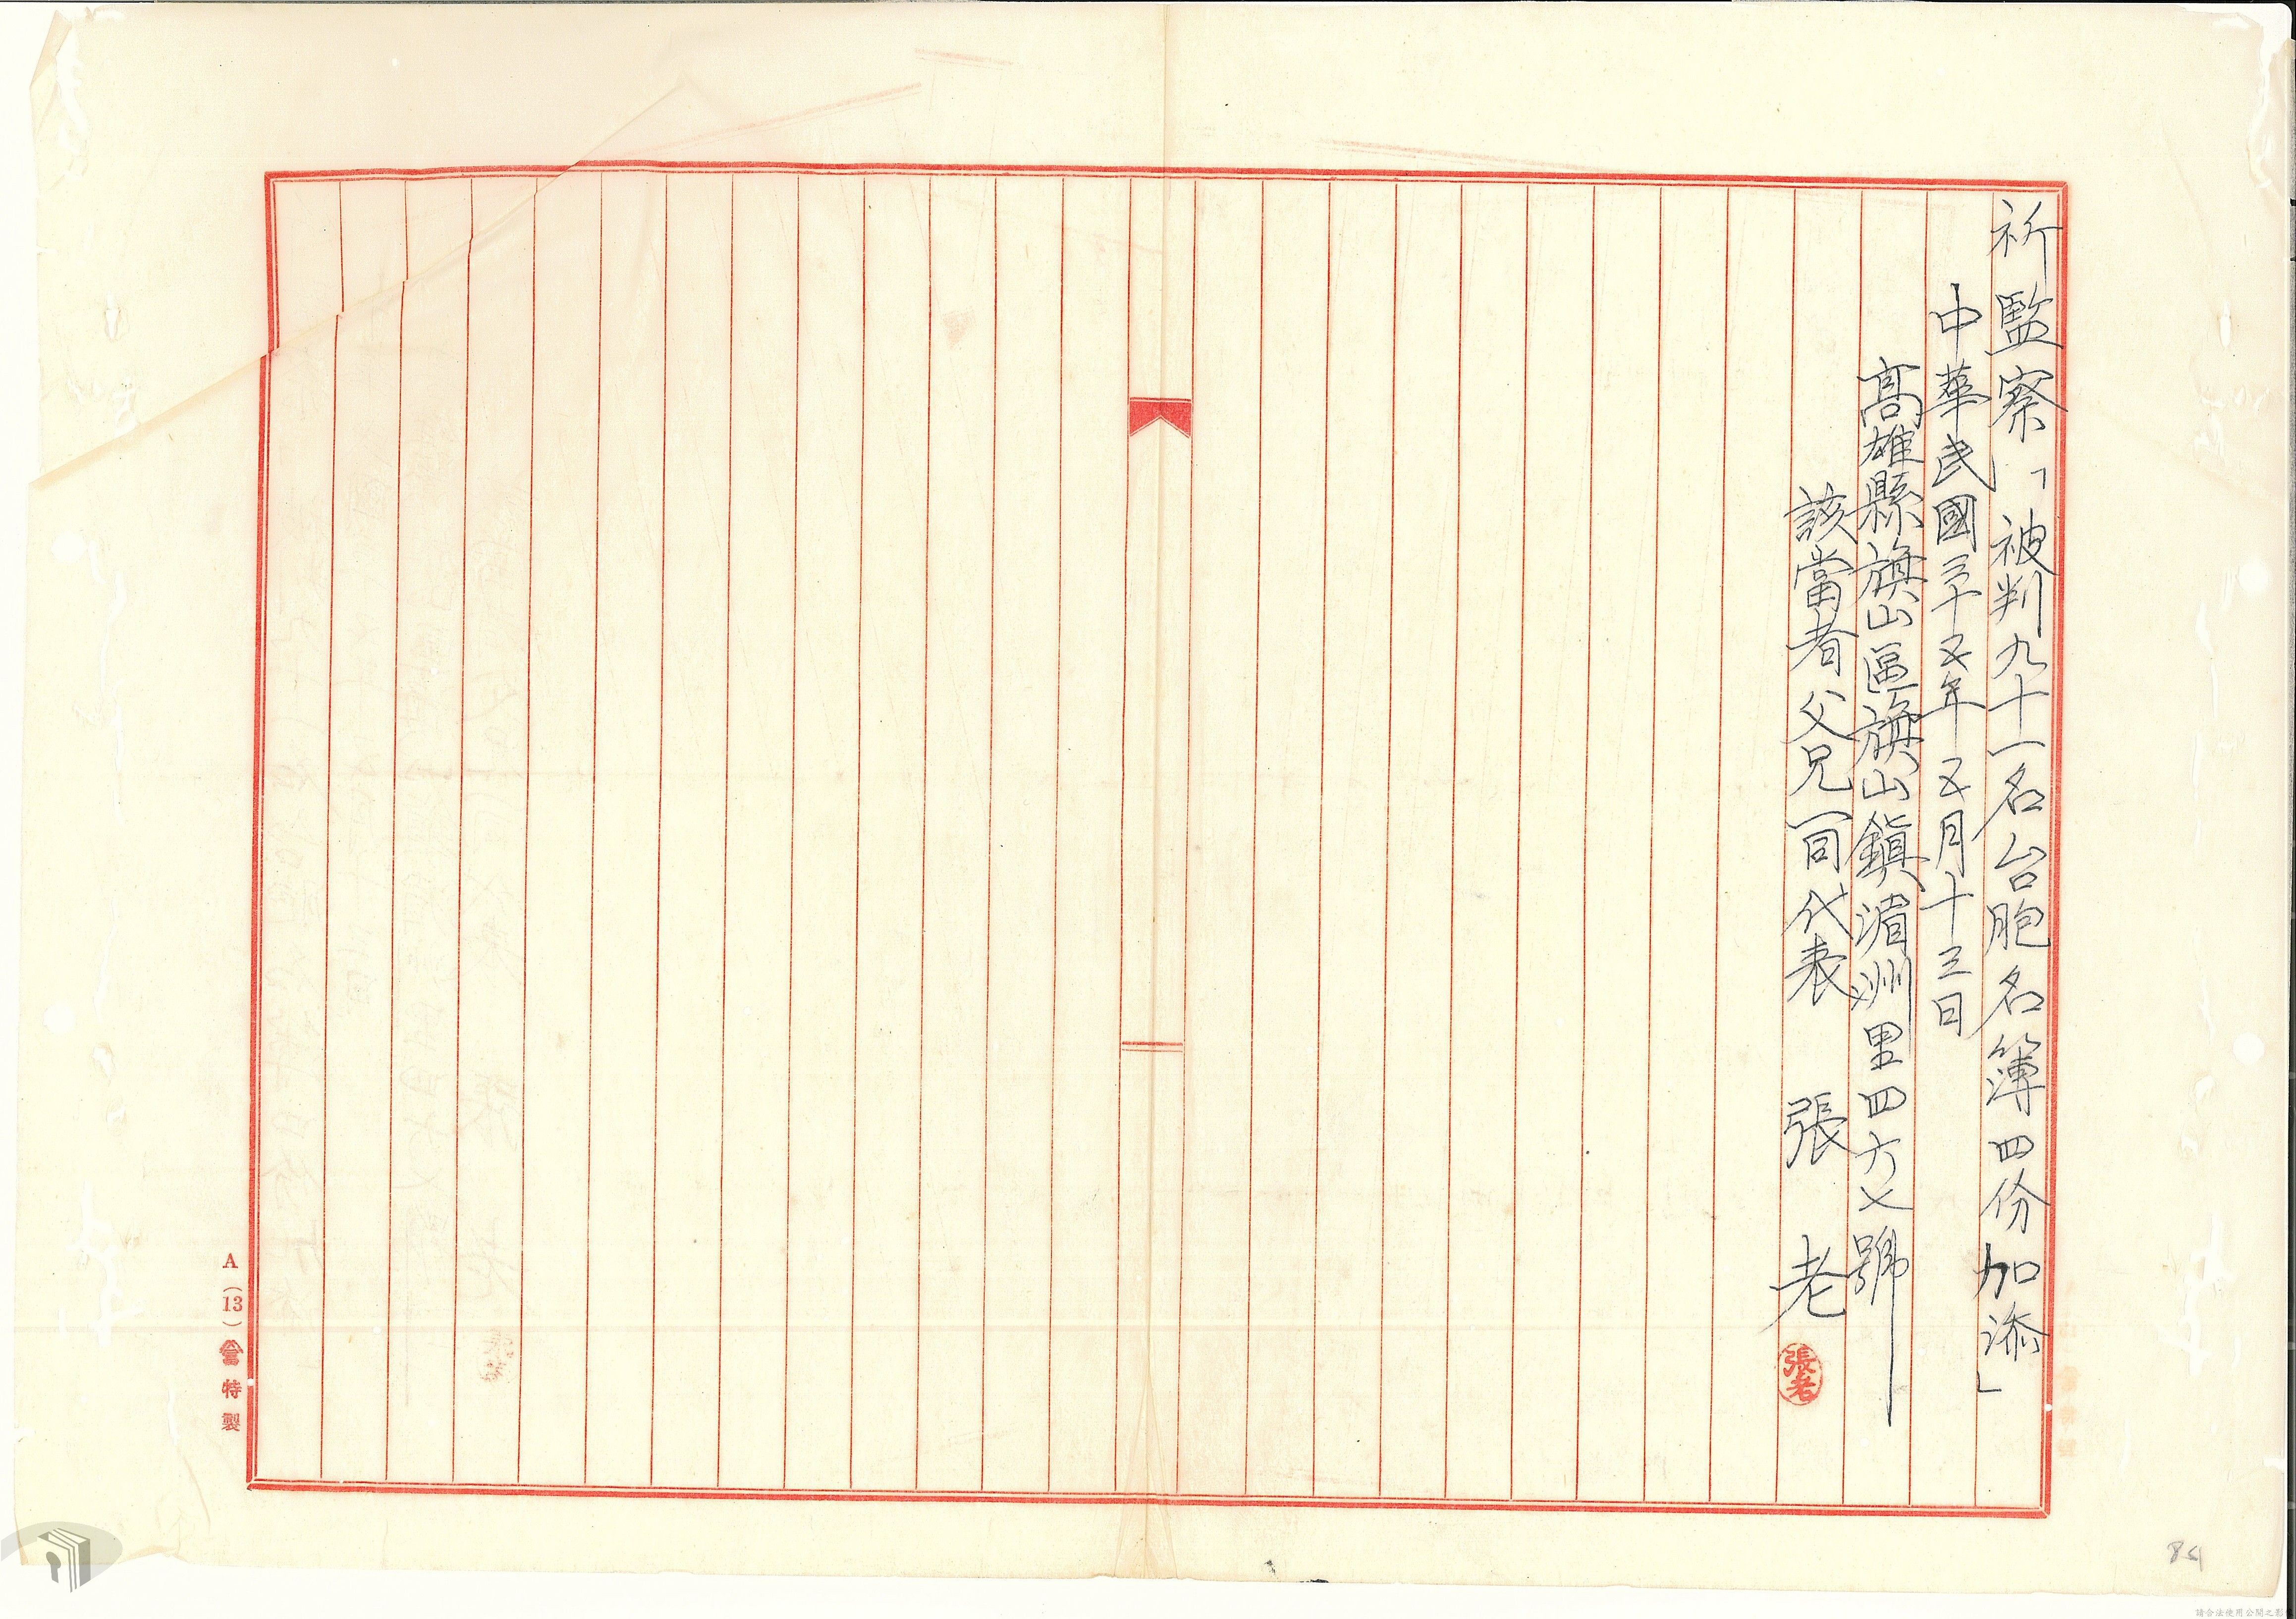 祈監察「被判九十一名台胞名簿四份加添」
中華民國三十五年五月十三日
高雄縣旗山區旗山鎮湄洲里四六七號
該當者父兄一同代表　張　老
張老
A（13）
特製
84